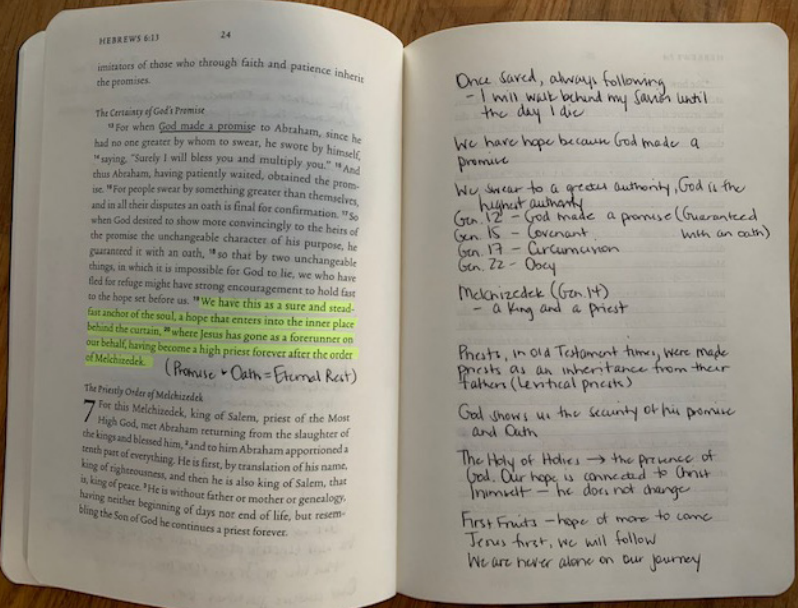 HEBREWS 6:13 24
imitators of those who through faith and patience inherit
the promises.
The Certainty of God's Promise
13 For when God made a promise to Abraham, since he
had no one greater by whom to swear, he swore by himself,
14 saying, "Surely I will bless you and multiply you." 15 And
thus Abraham, having patiently waited, obtained the prom-
ise. 16 For people swear by something greater than themselves,
and in all their disputes an oath is final for confirmation. 17 So
when God desired to show more convincingly to the heirs of
the promise the unchangeable character of his purpose, he
guaranteed it with an oath, 18 so that by two unchangeable
things, in which it is impossible for God to lie, we who have
fled for refuge might have strong encouragement to hold fast
to the hope set before us. 19 We have this as a sure and stead-
fast anchor of the soul, a hope that enters into the inner place
behind the curtain, 20 where Jesus has gone as a forerunner on
our behalf, having become a high priest forever after the order
of Melchizedek.
(Promise + Oath = Eternal Rest)
The Priestly Order of Melchizedek
7 For this Melchizedek, king of Salem, priest of the Most
High God, met Abraham returning from the slaughter of
the kings and blessed him, 2 and to him Abraham apportioned a
tenth part of everything. He is first, by translation of his name,
king of righteousness, and then he is also king of Salem, that
is, king of peace. 3 He is without father or mother or genealogy,
having neither beginning of days nor end of life, but resem-
bling the Son of God he continues a priest forever.
Once saved, always following
- I will walk behind my Savior until
the day I die
We have hope because God made a
promise
We swear to a greater authority, God is the
highest authority
Gen. 12 - God made a promise (Guaranteed
Gen. 15 - Covenant with an oath)
Gen. 17 - Circumcision
Gen. 22 - Obey
Melchizedek (Gen. 14)
- a King and a priest
Priests, in Old Testament times, were made
priests as an inheritance from their
fathers (Levitical priests)
God shows us the security of his promise
and Oath
The Holy of Holies → the presence of
God. Our hope is connected to Christ
himself - he does not change
First Fruits - hope of more to come
Jesus first, we will follow
We are never alone on our journey